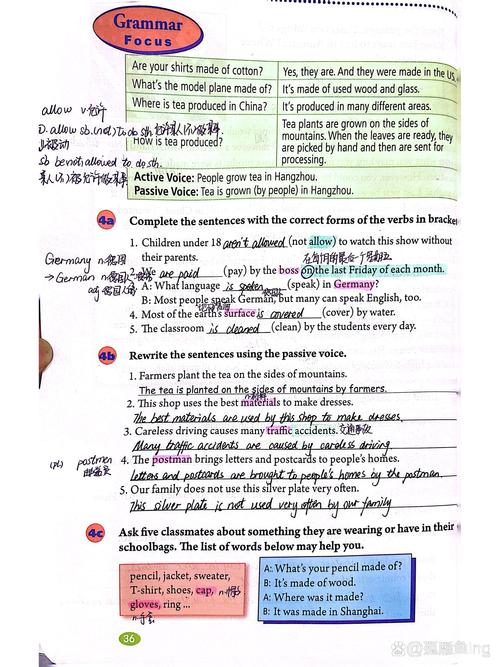 Grammar
Focus
Are your shirts made of cotton? Yes, they are. And they were made in the US.
What's the model plane made of? It's made of used wood and glass.
Where is tea produced in China? It's produced in many different areas.
How is tea produced? Tea plants are grown on the sides of
mountains. When the leaves are ready, they
are picked by hand and then are sent for
processing.
Active Voice: People grow tea in Hangzhou.
Passive Voice: Tea is grown (by people) in Hangzhou.
allow v.允许
allow sb.(not) to do sth.
被动
sb be not allowed to do sth.
4a Complete the sentences with the correct forms of the verbs in bracke
1. Children under 18 aren't allowed (not allow) to watch this show without
their parents.
在每个月的最后一个星期五
2. We are paid (pay) by the boss on the last Friday of each month.
Germany n.德国
→German
adj
3. A: What language is spoken (speak) in Germany?
B: Most people speak German, but many can speak English, too.
4. Most of the earth's surface is covered (cover) by water.
5. The classroom is cleaned (clean) by the students every day.
4b Rewrite the sentences using the passive voice.
1. Farmers plant the tea on the sides of mountains.
The tea is planted on the sides of mountains by farmers.
2. This shop uses the best materials to make dresses.
The best materials are used by this shop to make dresses.
3. Careless driving causes many traffic accidents. 交通事故
Many traffic accidents are caused by careless driving
(pl) postmen
邮递员
4. The postman brings letters and postcards to people's homes.
letters and postcards are brought to people's homes by the postman.
5. Our family does not use this silver plate very often.
This silver plate is not used very often by our family
4c Ask five classmates about something they are wearing or have in their
schoolbags. The list of words below may help you.
pencil, jacket, sweater,
T-shirt, shoes, cap, n.帽
gloves, ring ...
n.手套
A: What's your pencil made of?
B: It's made of wood.
A: Where was it made?
B: It was made in Shanghai.
36